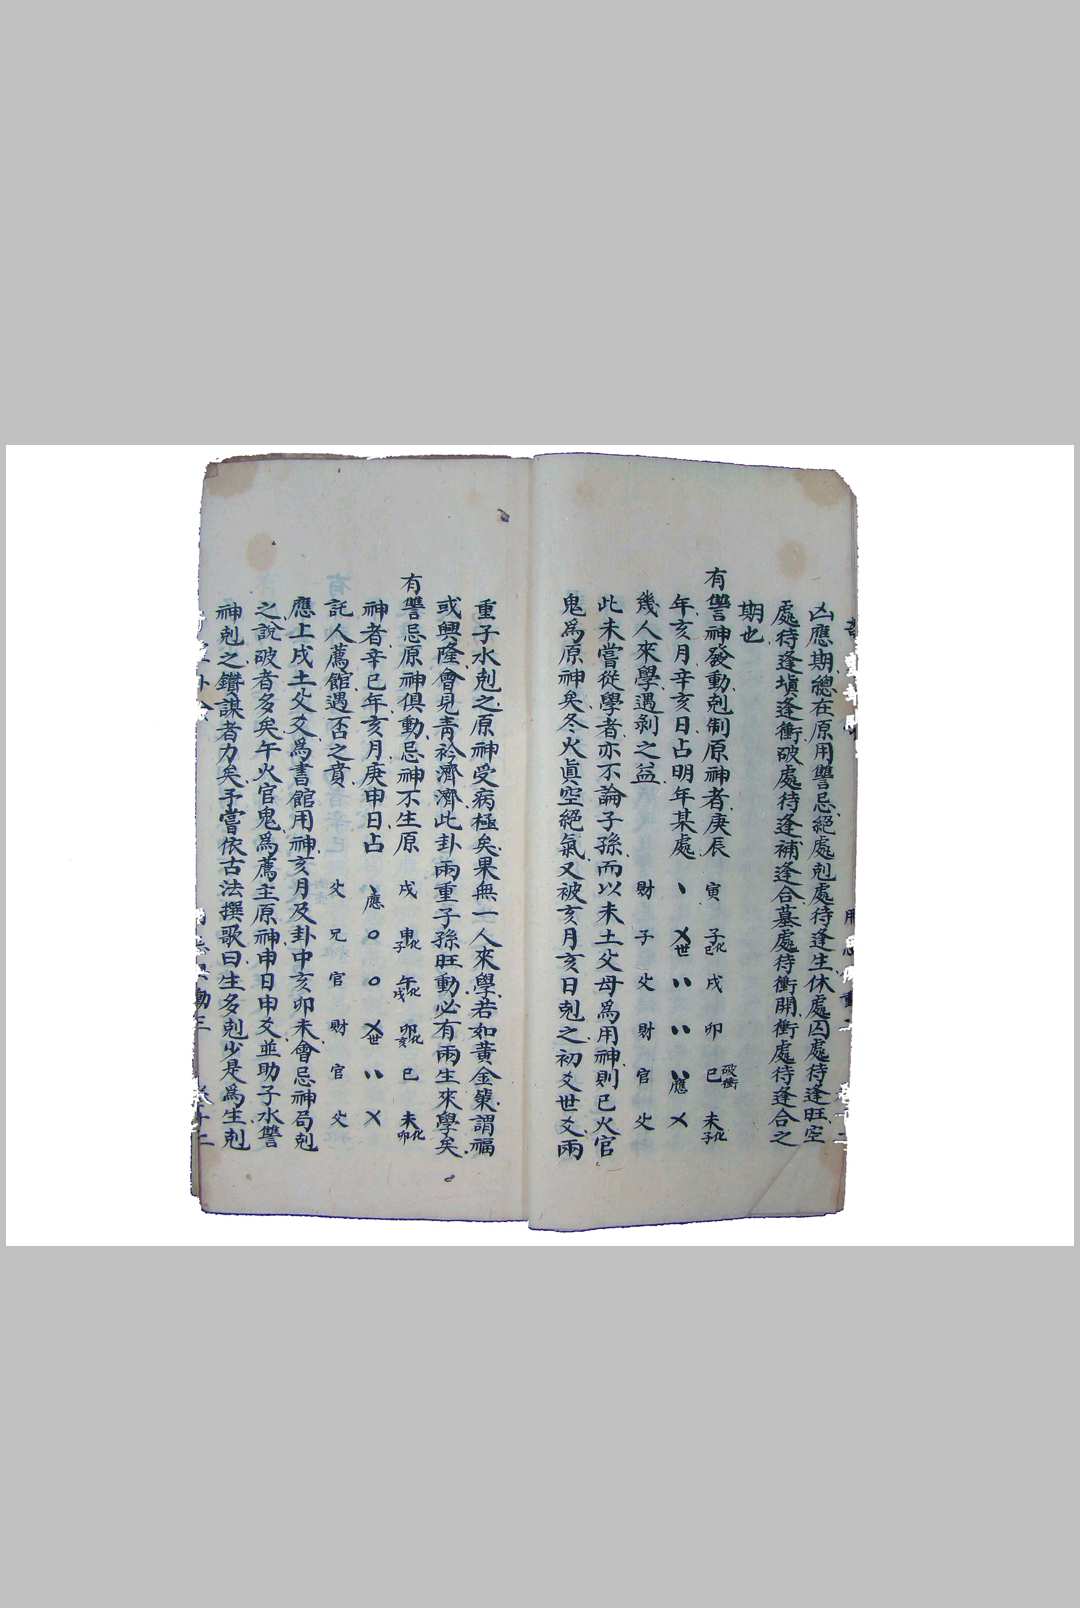 凶應期總在原用讐忌絕處剋處待逢生休處囚處待逢旺空
處待逢塡逢衝破處待逢補逢合墓處待衝開衝處待逢合之
期也
有讐神發動剋制原神者庚辰 寅 子化巳 戌 卯 巳破衝 未化子
年亥月辛亥日占明年某處 、 乂世 〃 〃 〃應 乂
幾人來學遇剥之益 財 子 父 財 官 父
此未嘗從學者亦不論子孫而以未土父母爲用神則巳火官
鬼爲原神矣冬火眞空絕氣又被亥月亥日剋之初爻世爻兩
重子水剋之原神受病極矣果無一人來學若如黃金策謂福
或興隆會見靑衿濟濟此卦兩重子孫旺動必有兩生來學矣
有讐忌原神俱動忌神不生原 戌 申化子 午化戌 卯化亥 巳 未化卯
神者辛巳年亥月庚申日占 、應 〇 〇 乂世 〃 乂
託人薦館遇否之賁 父 兄 官 財 官 父
應上戌土父爻爲書館用神亥月及卦中亥卯未會忌神局剋
之說破者多矣午火官鬼爲薦主原神申日申爻並助子水讐
神剋之鑽謀者力矣予嘗依古法撰歌曰生多剋少是爲生剋